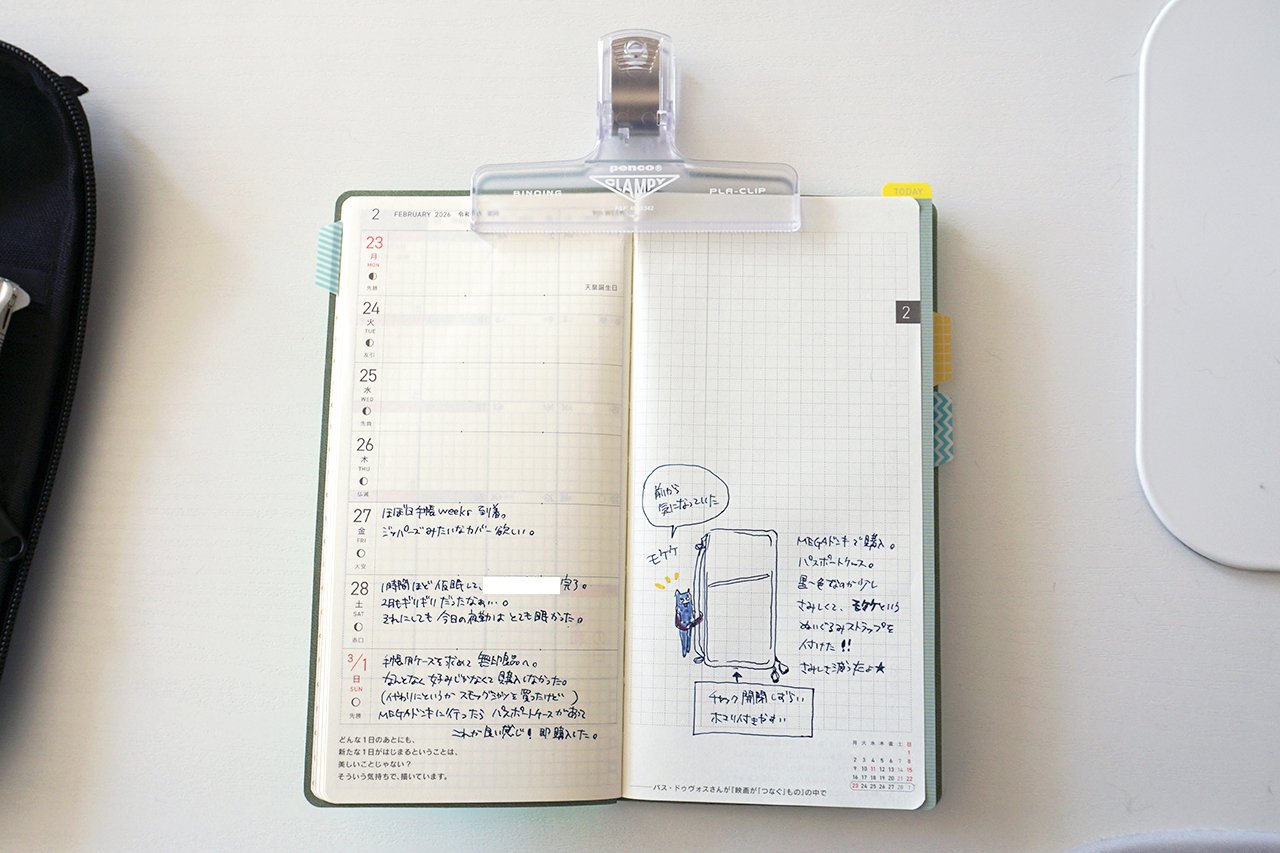 penco®
BINDING CLAMPY PLA-CLIP
TODAY
2 FEBRUARY 2026 令和
23
月
MON
先勝
天皇誕生日
24
火
TUE
友引
25
水
WED
先負
26
木
THU
仏滅
27
金
FRI
大安
ほぼ日手帳weeks 到着。
ジッパーズみたいなカバー欲しい。
28
土
SAT
赤口
1時間ほど仮眠して、 完了。
2月もギリギリだったなぁ…。
それにしても今日の夜勤はとても眠かった。
3/1
日
SUN
先勝
手帳用ケースを求めて無印良品へ。
なんとなく好みじゃなくて購入しなかった。
(代わりにというか スモックを買ったけど)
MEGAドンキに行ったら パスポートケースがあって
これが良い感じ! 即購入した。
どんな1日のあとにも、
新たな1日がはじまるということは、
美しいことじゃない?
そういう気持ちで、描いています。
2
前から
気になっていた
モケケ
MEGAドンキで購入。
パスポートケース。
黒一色なのが少し
さみしくて、モケケという
ぬいぐるみストラップを
付けた!!
さみしさ減ったよ★
チャック開閉しずらい
ホコリ付きやすい
月 火 水 木 金 土 日
1
2 3 4 5 6 7 8
9 10 11 12 13 14 15
16 17 18 19 20 21 22
23 24 25 26 27 28 1
バス・ドゥヴォスさんが『映画が「つなぐ」もの』の中で